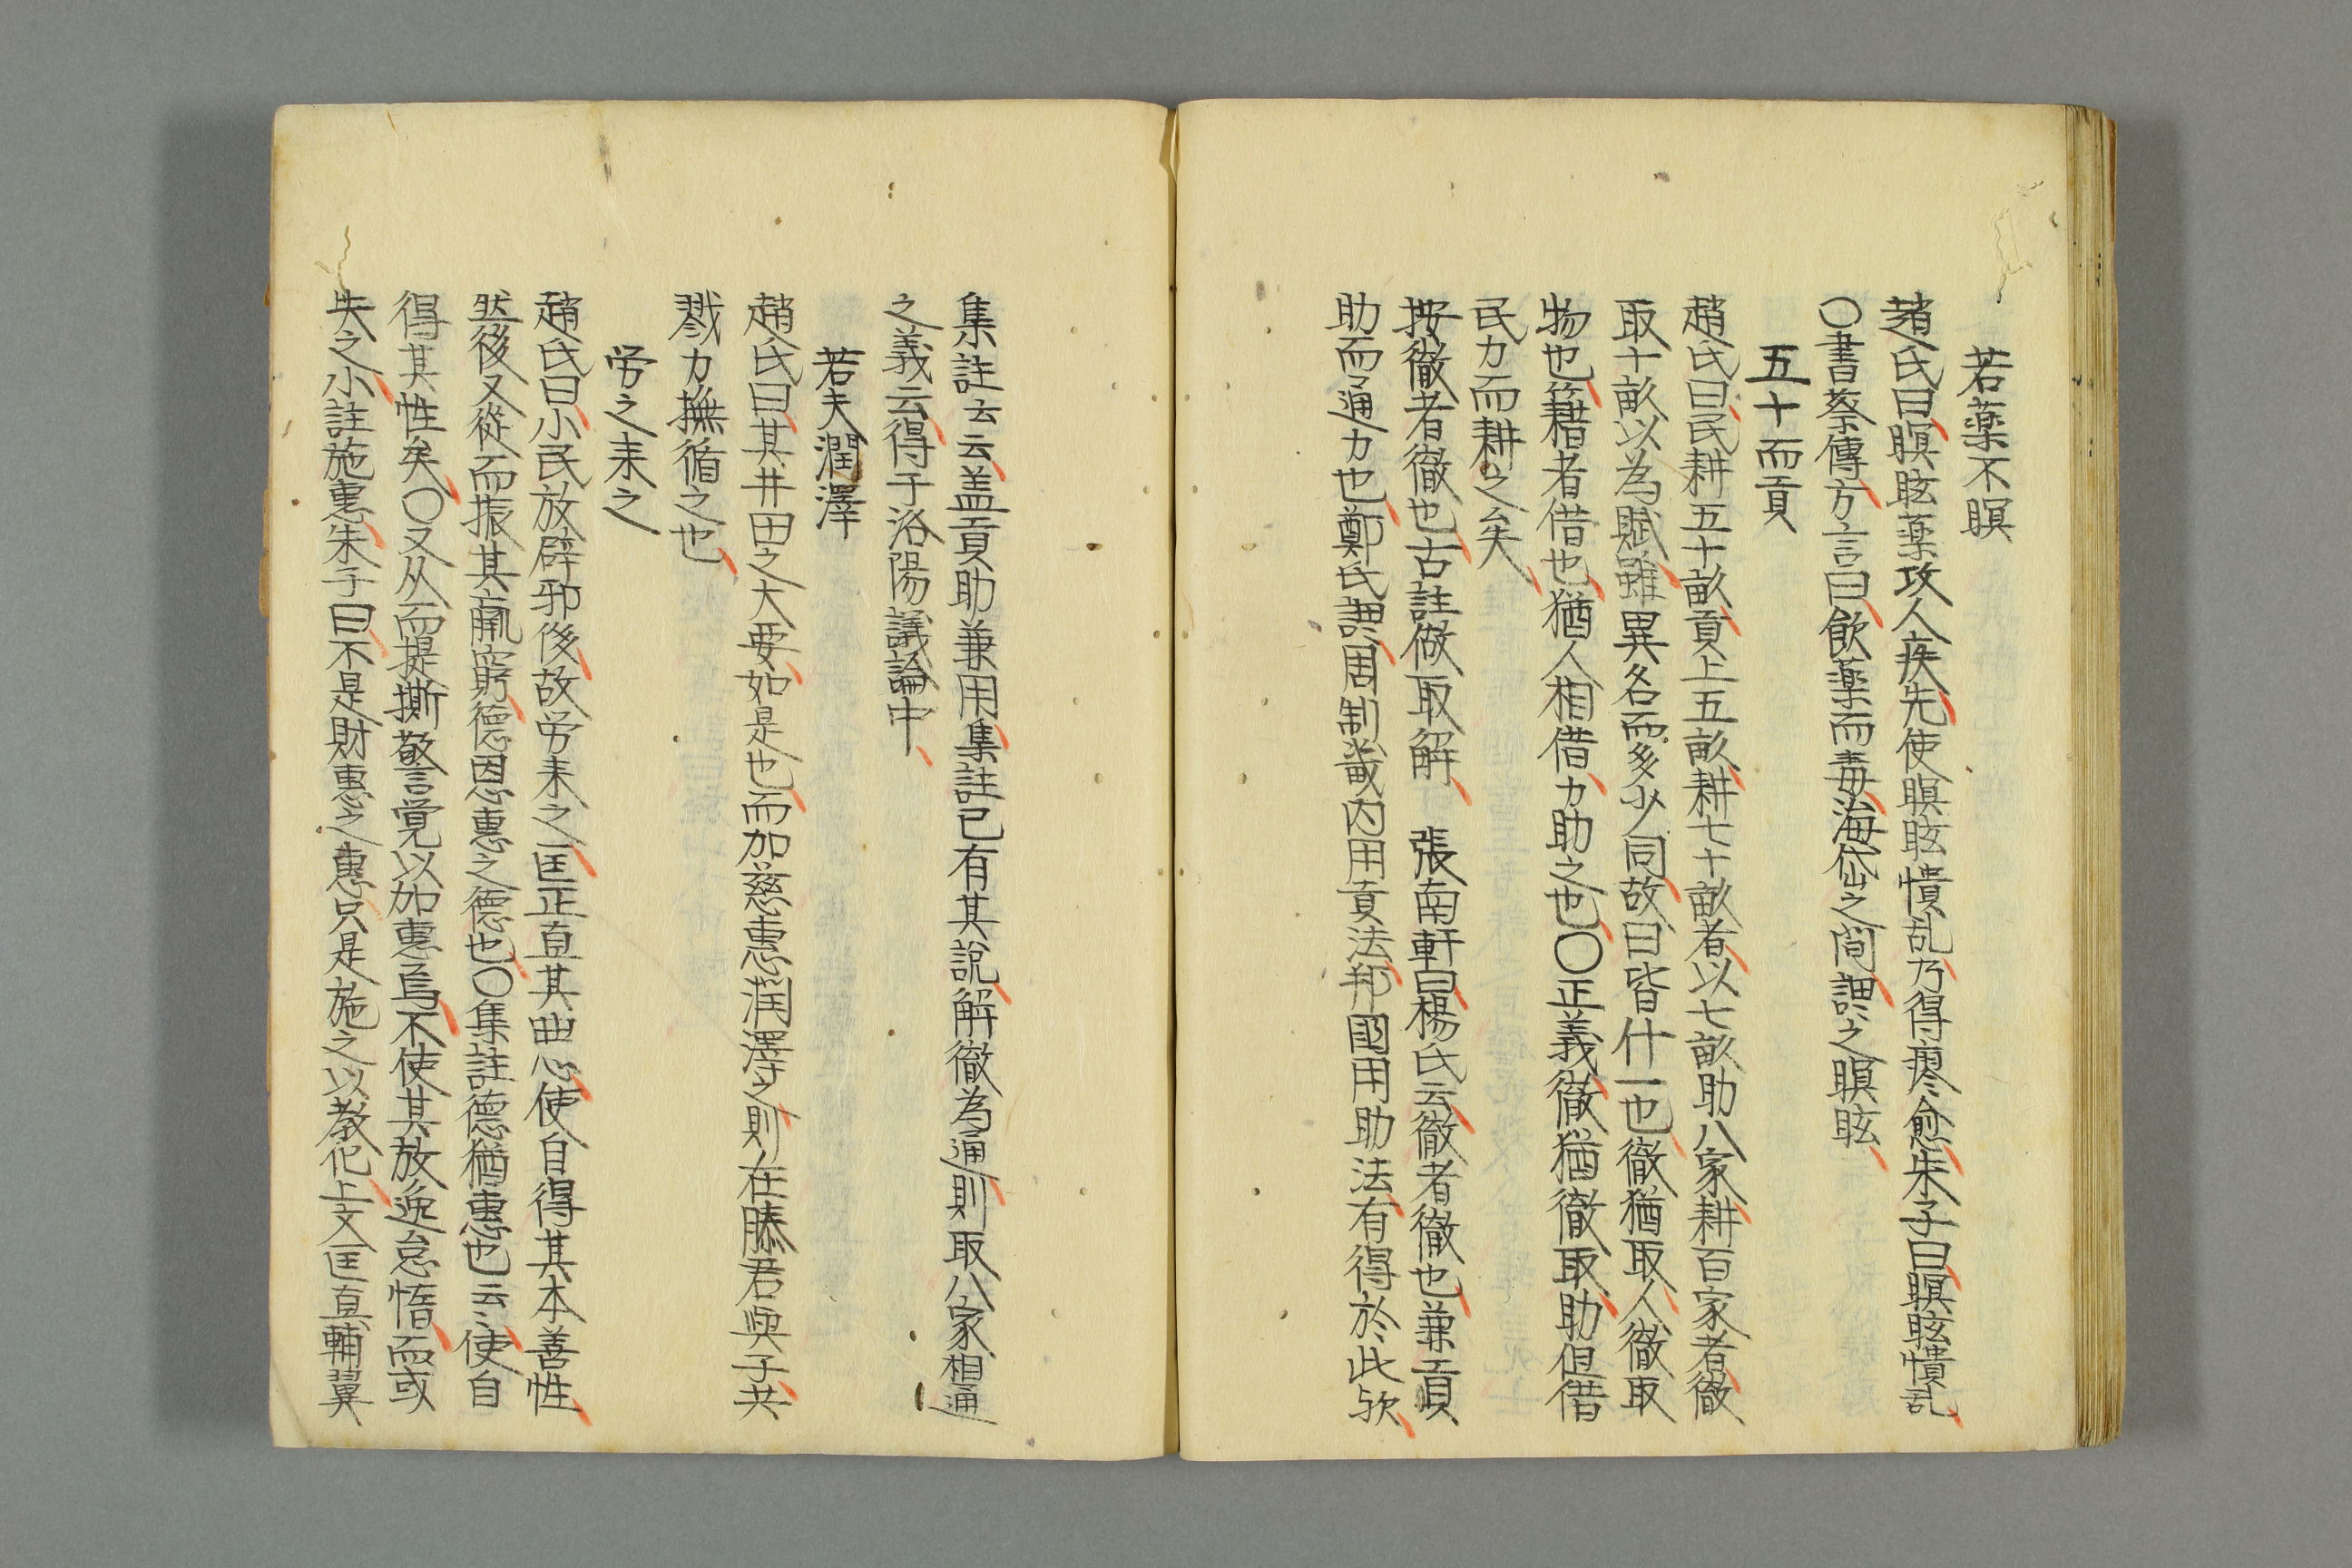 若薬不瞑
趙氏曰瞑眩薬攻人疾先使瞑眩憒乱乃得瘳愈朱子曰瞑眩憒乱
〇書蔡傳方言曰飲薬而毒海岱之間謂之瞑眩
五十而貢
趙氏曰民耕五十畝貢上五畝耕七十畝者以七畝助八家耕百家者徹
取十畝以為賦雖異名而多少同故曰皆什一也徹猶取人徹取
物也籍者借也猶人相借力助之也〇正義徹猶徹取助但借
民力而耕之矣
按徹者徹也古註做取解 張南軒曰楊氏云徹者徹也兼貢
助而通力也鄭氏謂周制畿内用貢法邦國用助法有得於此欤
集註云云盖貢助兼用集註已有其說解徹為通則取八家相通
之義云得于洛陽議論中
若夫潤澤
趙氏曰其井田之大要如是也而加慈惠潤澤之則在滕君與子共
戮力撫循之也
労之来之
趙氏曰小民放辟邪侈故労来之匡正直其曲心使自得其本善性
然後又從而振其羸窮德恩惠之德也〇集註德猶惠也云〻使自
得其性矣〇又从而提撕警覚以加惠焉不使其放逸怠惰而或
失之小註施惠朱子曰不是財惠之惠只是施之以教化上文匡直輔翼